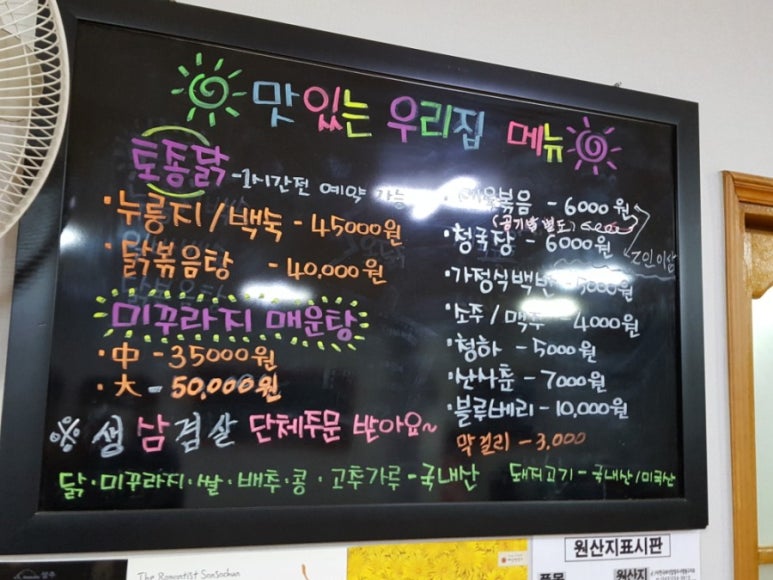 맛있는 우리집 메뉴
토종닭 -1시간전 예약 가능
·누룽지/백숙 - 45000원
·닭볶음탕 - 40,000원
미꾸라지 매운탕
·中 - 35000원
·大 - 50,000원
※ 생삼겹살 단체주문 받아요~
볶음 - 6000원
(공기밥 별도)
·청국장 - 6000원
2인이상
·가정식백반 - 5000원
·소주/맥주 - 4000원
·청하 - 5000원
·산사춘 - 7000원
·블루베리 - 10,000원
막걸리 - 3,000
닭·미꾸라지·쌀·배추·콩·고추가루 - 국내산 돼지고기 - 국내산/미국산
The Romantist Sonsochun
원산지표시판
품목 원산지